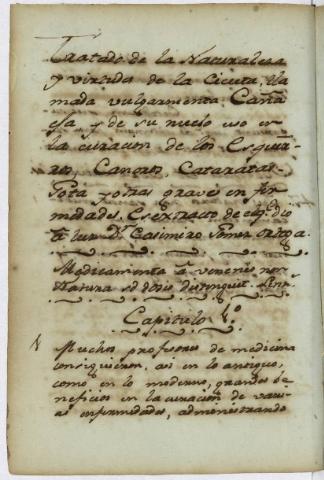 Tratado de la Naturaleza
y virtuds de la Cicuta, lla
mada vulgarmente Cañ̃a
esa y de su nuebo uso en
la curacion de los Esquir-
ros, Cancros, Cataratas,
Gota y otras graves en fer
medades. Es extracto de el q.e dio
â luz D.n Casimiro Gomez Ortega.
Medicamenta â venenis non
Natura sd dosis distinguit. Linn.
Capitulo 1.º
1 Muchos profesores de medicina
consiguieron, asi en lo antiguo,
como en lo moderno, grandes be
neficios en la curacion de vari-
as enfermedades, administrando